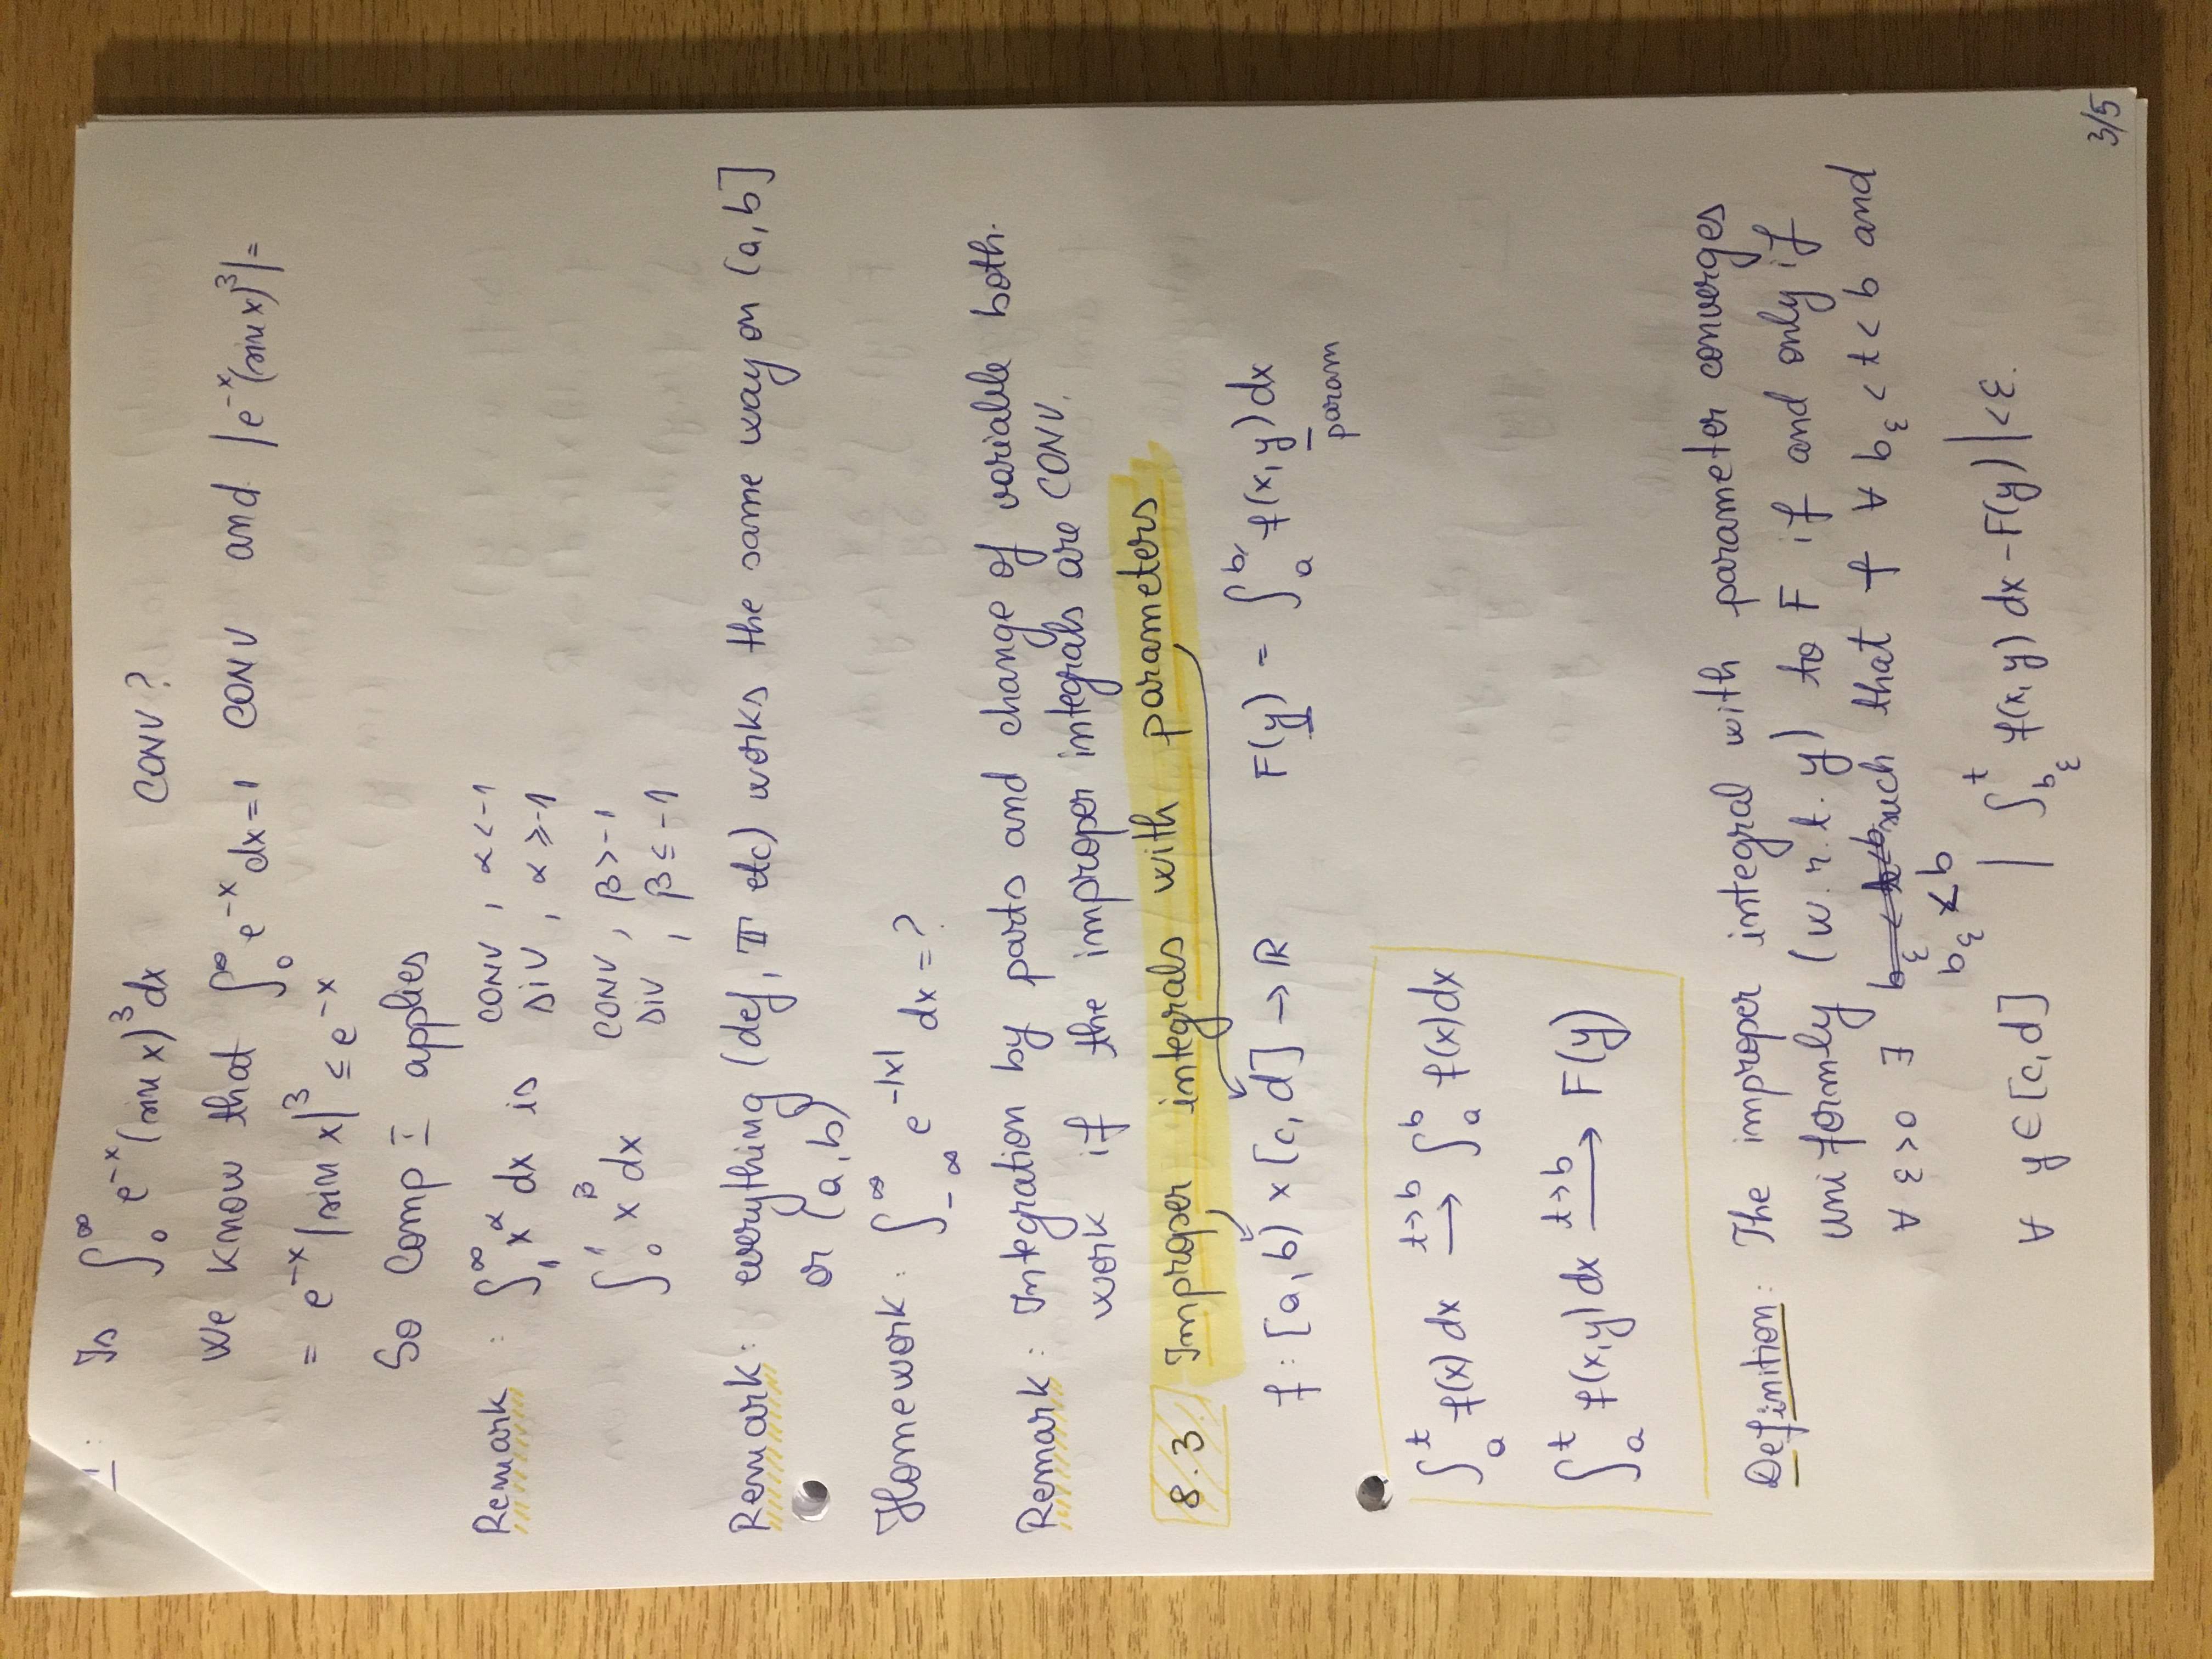 1:
Is ∫₀^∞ e^{-x}(sin x)³dx CONV?
We know that ∫₀^∞ e^{-x} dx=1 CONV and |e^{-x}(sin x)³|=
= e^{-x}|sin x|³ ≤ e^{-x}
So Comp I applies
Remark : ∫₁^∞ x^α dx is CONV, α<-1
DIV, α≥-1
∫₀^1 x^β dx CONV, β>-1
DIV, β≤-1
Remark: everything (def, II etc) works the same way on (a,b]
or (a,b)
Homework: ∫_{-∞}^∞ e^{-|x|} dx=?
Remark: Integration by parts and change of variable both
work if the improper integrals are CONV.
8.3. Improper integrals with parameters
f: [a,b) × [c,d] → ℝ F(y) = ∫_a^b f(x,y)dx
param
∫_a^t f(x) dx →^{t→b} ∫_a^b f(x)dx
∫_a^t f(x,y) dx →^{t→b} F(y)
Definition: The improper integral with parameter converges
uniformly (w.r.t. y) to F if and only if
∀ ε>0 ∃ such that ∀ b_ε<t<b and
b_ε<b
∀ y∈[c,d] |∫_{b_ε}^t f(x,y) dx-F(y)|<ε.
3/5